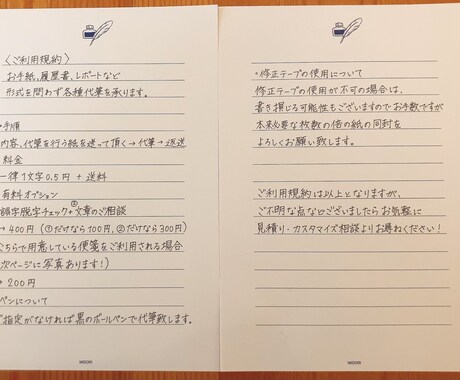 〈ご利用規約〉
お手紙、履歴書、レポートなど
形式を問わず各種代筆を承ります。
・手順
内容、代筆を行う紙を送って頂く→代筆→返送
料金
一律1文字0.5円+送料
有料オプション
誤字脱字チェック+②文章のご相談
→400円(①だけなら100円、②だけなら300円)
こちらで用意している便箋をご利用される場合
次ページに写真あります!)
→200円
ペンについて
ご指定がなければ黒のボールペンで代筆致します。
MIDORI
・修正テープの使用について
修正テープの使用が不可の場合は、
書き損じる可能性もございますのでお手数ですが
本来必要な枚数の倍の紙の同封を
よろしくお願い致します。
ご利用規約は以上となりますが、
ご不明な点などございましたらお気軽に
見積り・カスタマイズ相談よりお尋ねください!
MIDORI